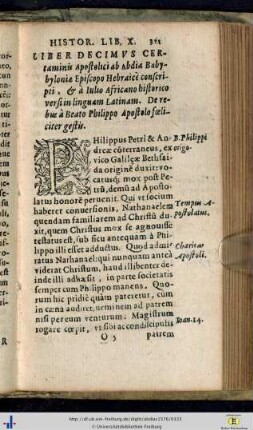 HISTOR. LIB. X. 311
LIBER DECIMVS CER-
taminis Apostolici ab Abdia Baby-
byloniæ Episcopo Hebraicè conscri-
pti, & à Iulio Africano historico
versi in linguam Latinam. De re-
bus à Beato Philippo Apostolo fœli-
citer gestis.
PHilippus Petri & An- B. Philippi
dreæ cōterraneus, ex origo.
vico Galilęæ Bethsai-
da originē duxit: vo-
catusq; mox post Pe-
trū, demū ad Aposto-
latus honorē peruenit. Qui vt socium
haberet conuersionis, Nathanaelem Tempus A-
quendam familiarem ad Christū du- postolatus.
xit, quem Christus mox se agnouisse
testatus est, sub ficu antequam à Phi-
lippo illi esset adductus. Quod admi- Charitas
ratus Nathanael: qui nunquam anteà Apostoli.
viderat Christum, haud illibenter de-
inde illi adhæsit, in parte societatis
semper cum Philippo manens. Quo-
rum hic pridiè quàm pateretur, cùm
in cœna audiret, neminem ad patrem
nisi per eum venturum: Magistrum
rogare cœpit, vt sibi ac condiscipulis Ioan. 14.
O 5 patrem
http://dl.ub.uni-freiburg.de/diglit/abdias1576/0333
© Universitätsbibliothek Freiburg